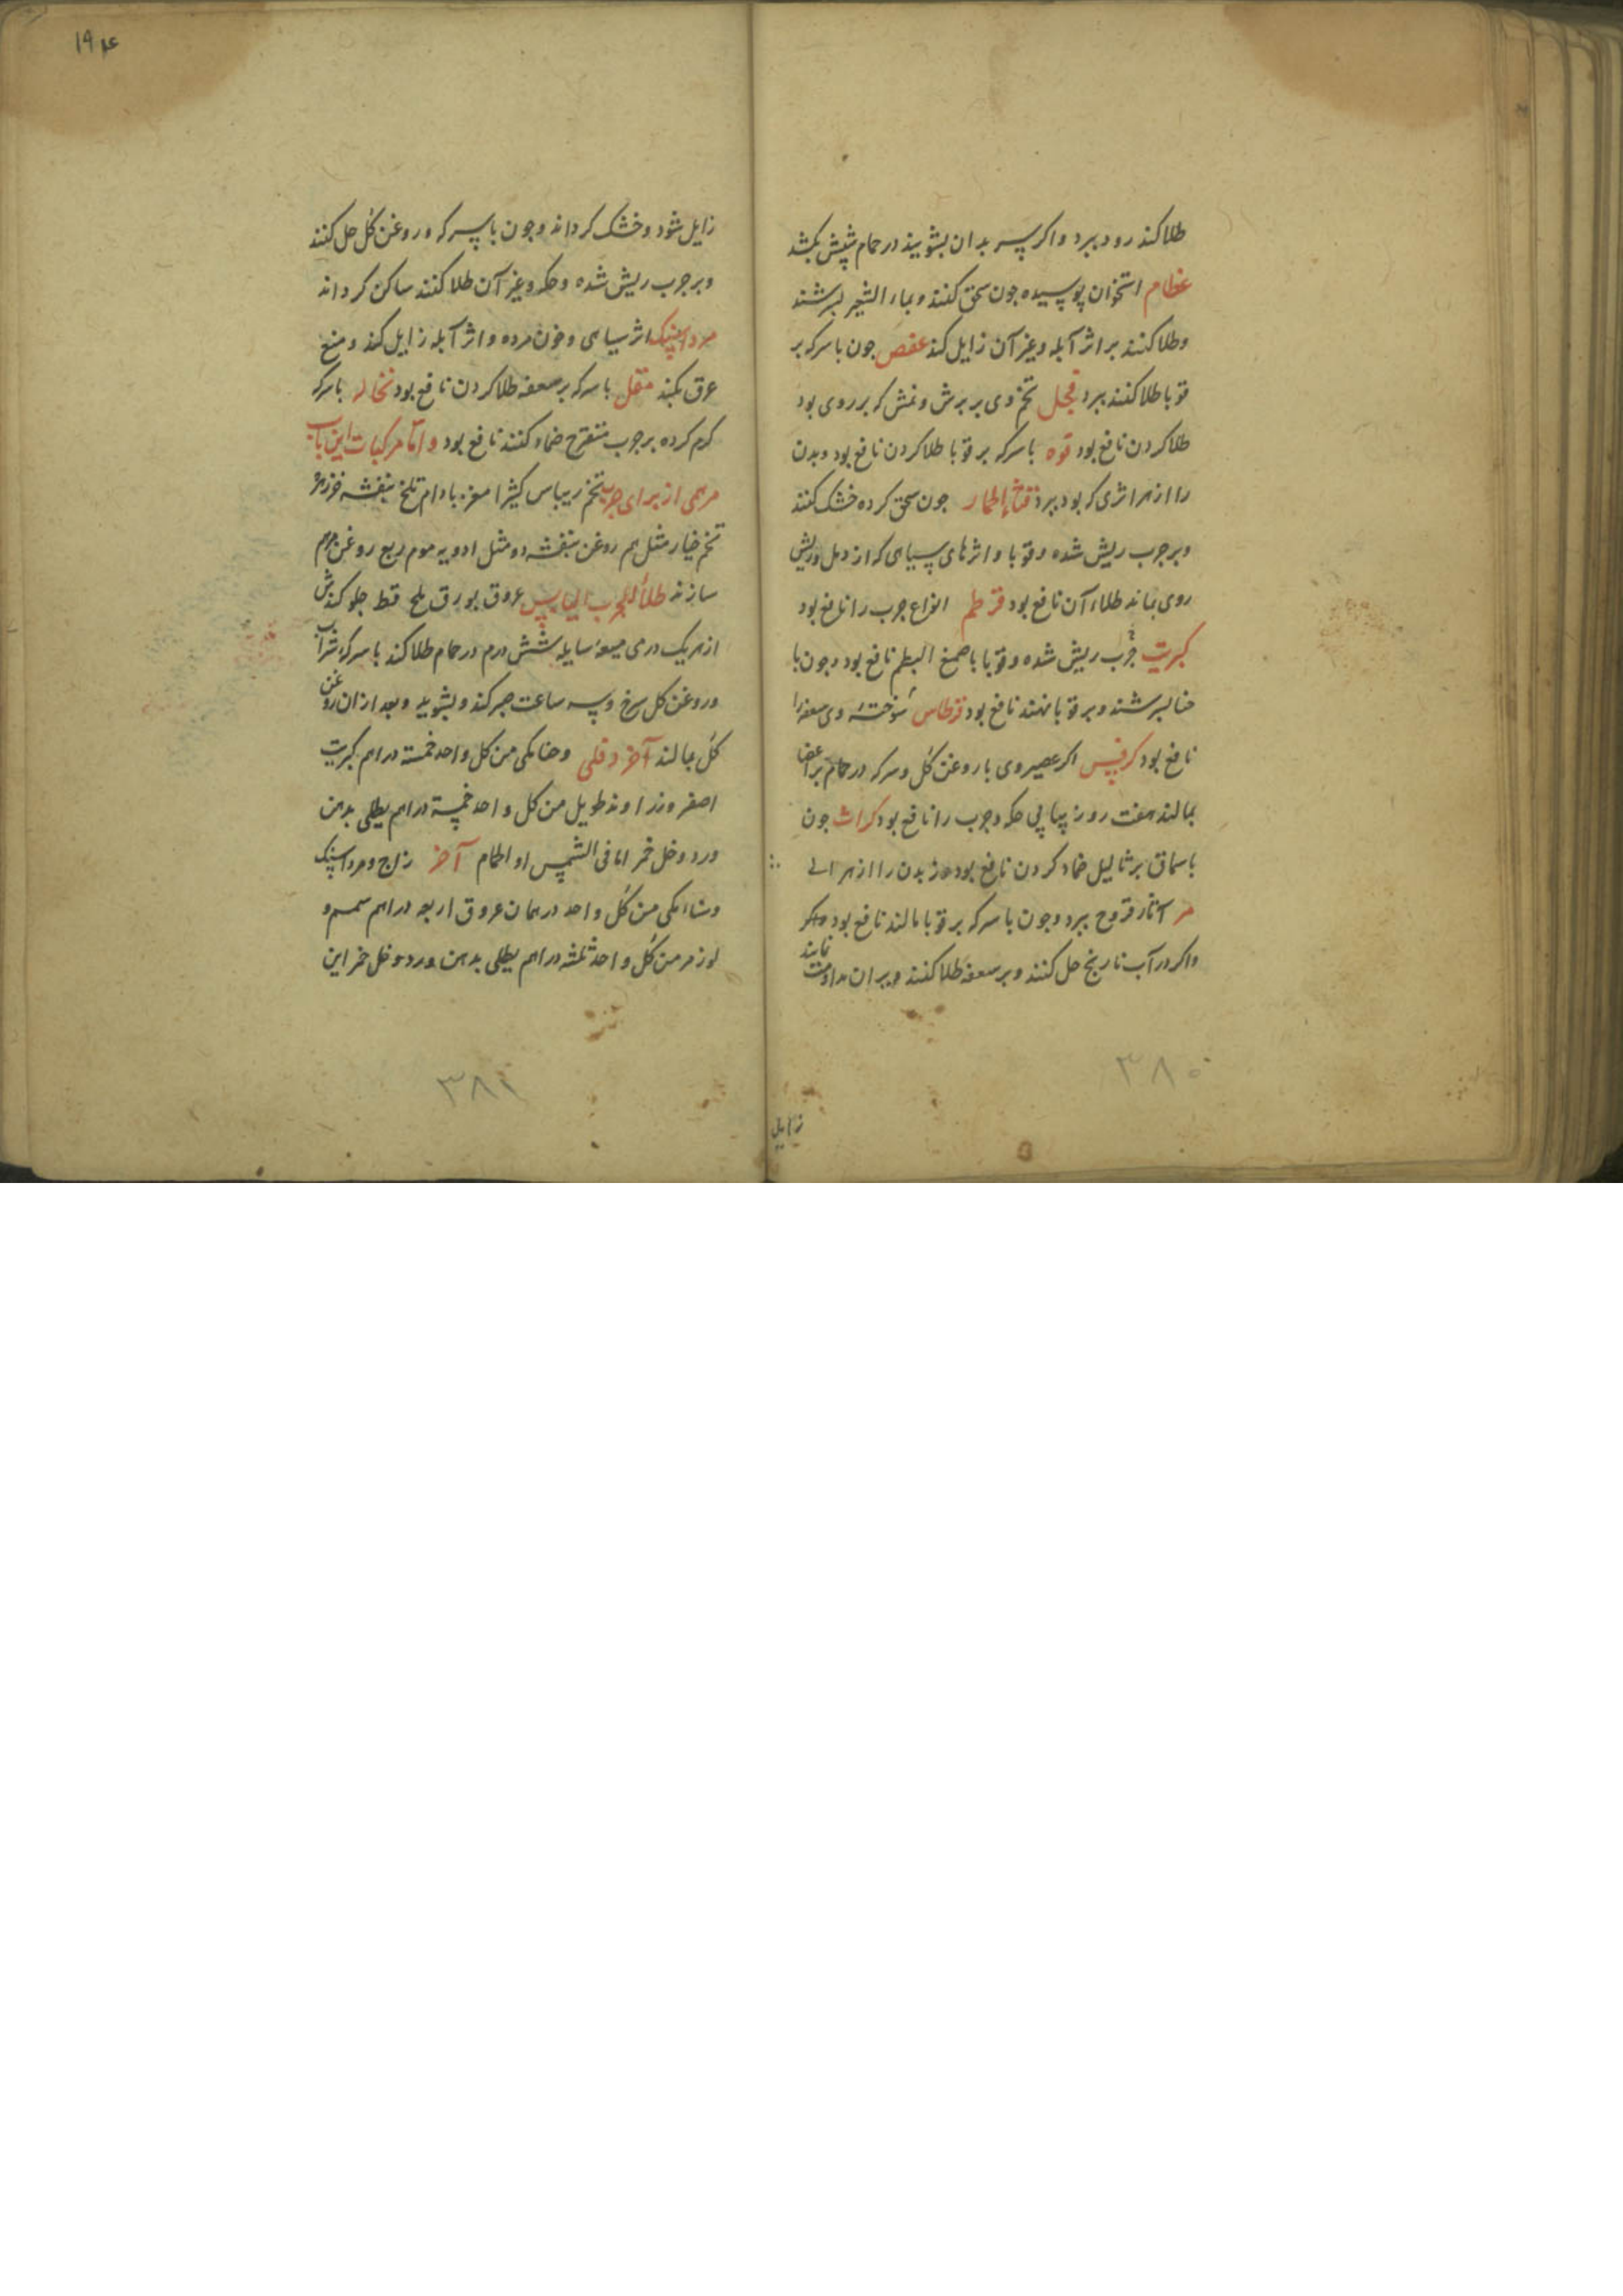 طلا کند زود ببرد و اکر سر بدان بشویند در حمام شپش بکشد
عظام استخوان پوسیده جون سحق کنند و بماء الشعیر بسرشند
و طلا کنند بر اثر آبله و غیر آن زایل کند عفص جون با سرکه بر
قوبا طلا کنند ببرد فجل تخم وی بر برش و نمش که بر روی بود
طلا کردن نافع بود فوه با سرکه بر قوبا طلا کردن نافع بود و بدن
را از هر اثری که بود ببرد قثاء الحمار جون سحق کرده خشک کنند
و بر جرب ریش شده و قوبا و اثرهای سیاهی که از دمل و ریش
روی بماند طلاء آن نافع بود قرطم انواع جرب را نافع بود
کبریت جرب ریش شده و قوبا با صمغ البطم نافع بود و جون با
حنا بسرشند و بر قوبا نهند نافع بود قرطاس سوخته وی سعفه را
نافع بود کرفس اکر عصیر وی با روغن کل و سرکه در حمام بر اعضا
بمالند هفت روز پیاپی حکه و جرب را نافع بود کراث جون
با سماق بر ثالیل ضماد کردن نافع بود و بدن را از هر
مر آثار قروح ببرد و جون با سرکه بر قوبا مالند نافع بود
و اکر در آب نارنج حل کنند و بر سعفه طلا کنند و بر آن مداومت نمایند
زایل
۳۸۰
۱۹۴
زایل شود و خشک کرداند و جون با سرکه و روغن کل حل کنند
و بر جرب ریش شده و حکه و غیر آن طلا کنند ساکن کرداند
مرداسنک اثر سیاهی و خون مرده و اثر آبله زایل کند و منع
عرق بکند مقل با سرکه بر سعفه طلا کردن نافع بود نخاله با سرکه
کرم کرده بر جرب متقرح ضماد کنند نافع بود و اما مرکبات این باب
مرهمی از برای جرب تخم ریباس کثیرا مغز بادام تلخ بنفشه
تخم خیار مثل هم روغن بنفشه دو مثل ادویه موم ربع روغن مرهم
سازند طلاء للجرب الیابس عروق بورق ملح قسط کندش
از هر یک درمی میعه سایله شش درم در حمام طلا کند با سرکه شراب
و روغن کل سرخ و سه ساعت صبر کند و بشوید و بعد از آن روغن
کل بمالند آخر دفلی و حنا مکی من کل واحد خمسة دراهم کبریت
اصفر و زراوند طویل من کل واحد خمسة دراهم یطلی بدهن
ورد و خل خمر اما فی الشمس او الحمام آخر زاج و مرداسنک
و حنا مکی من کل واحد درهمان عروق اربعه دراهم سمسم و
لوز مر من کل واحد ثلثه دراهم یطلی بدهن ورد و خل خمر این
۳۸۱